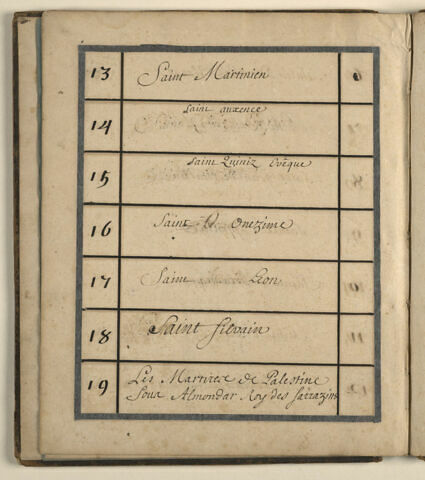 13 Saint Martinien
14 Saint auxence
15 Saint Quiniz Evêque
16 Saint Onezime
17 Saint Leon
18 Saint Silvain
19 Les Martires de Palestine
Sous Almondar Roy des Sarrazins